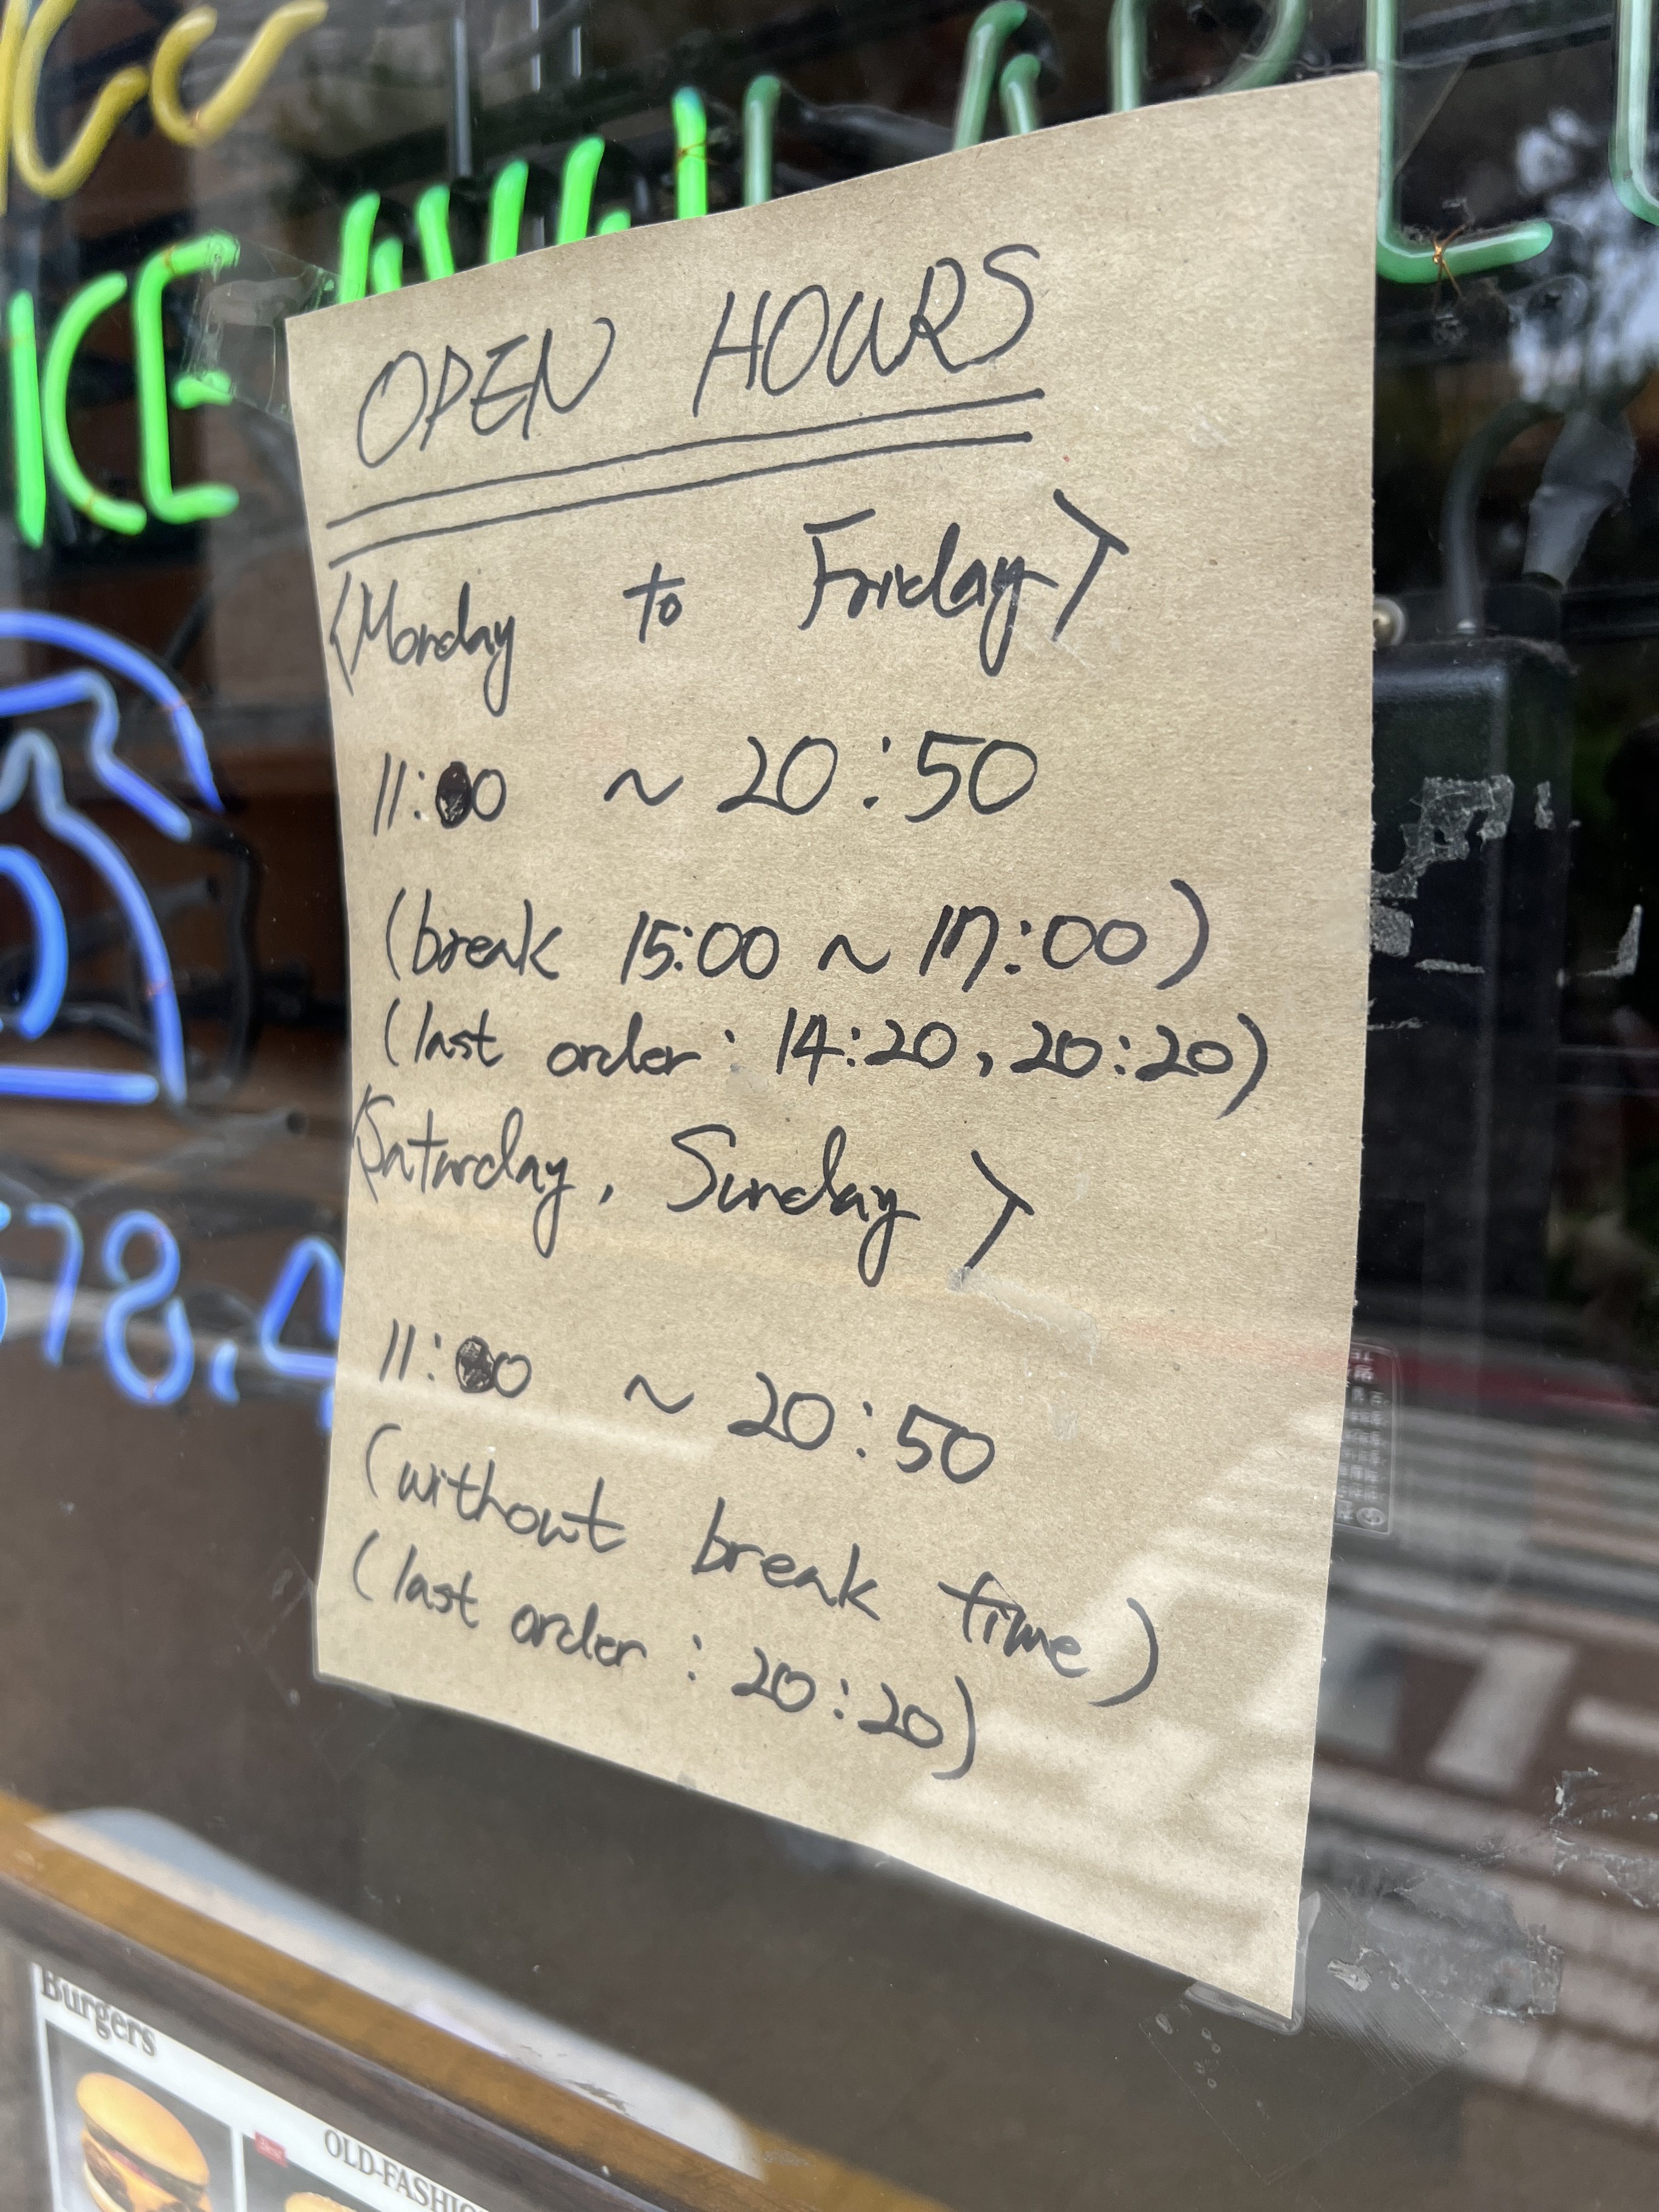 ICE
OPEN HOURS
<Monday to Friday>
11:00 ~ 20:50
(break 15:00 ~ 17:00)
(last order: 14:20, 20:20)
<Saturday, Sunday>
11:00 ~ 20:50
(without break time)
(last order: 20:20)
78.4
Burgers
Best
OLD-FASHIO